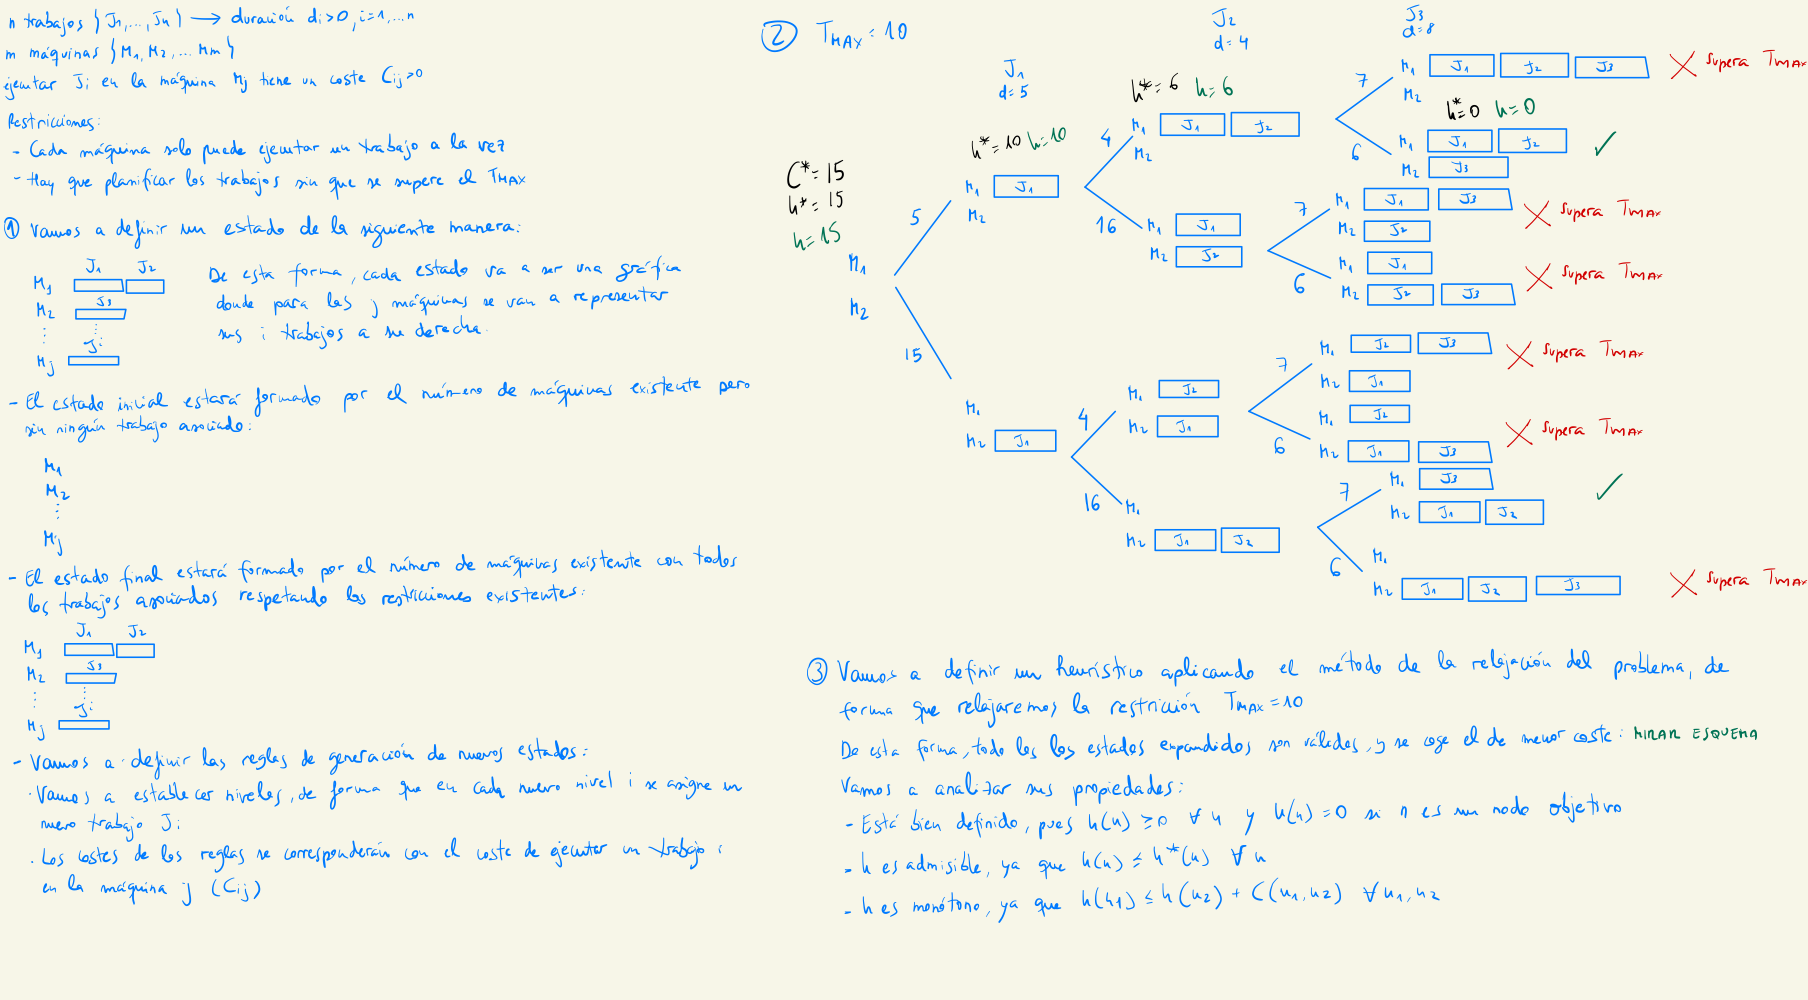 n trabajos {J1,...,Jn} → duración di>0, i=1,...n
m máquinas {M1, M2, ... Mm}
ejecutar Ji en la máquina Mj tiene un coste Cij>0
Restricciones:
- Cada máquina solo puede ejecutar un trabajo a la vez
- Hay que planificar los trabajos sin que se supere el TMAX
① Vamos a definir un estado de la siguiente manera:
J1 J2
M1
J3
M2
⋮ ⋮
Ji
Mj
De esta forma, cada estado va a ser una gráfica
donde para las j máquinas se van a representar
sus i trabajos a su derecha.
- El estado inicial estará formado por el número de máquinas existente pero
sin ningún trabajo asociado:
M1
M2
⋮
Mj
- El estado final estará formado por el número de máquinas existente con todos
los trabajos asociados respetando las restricciones existentes:
J1 J2
M1
J3
M2
⋮ ⋮
Ji
Mj
- Vamos a definir las reglas de generación de nuevos estados:
· Vamos a establecer niveles, de forma que en cada nuevo nivel i se asigne un
nuevo trabajo Ji
· Los costes de las reglas se corresponderán con el coste de ejecutar un trabajo i
en la máquina j (Cij)
② TMAX = 10
J1
d=5
J2
d=4
J3
d=8
C*=15
h*=15
h=15
M1
M2
5
15
h*=10 h=10
M1 J1
M2
4
16
M1
M2 J1
4
16
h*=6 h=6
M1 J1 J2
M2
7
6
M1 J1
M2 J2
7
6
M1 J2
M2 J1
7
6
M1
M2 J1 J2
7
6
M1 J1 J2 J3 X supera TMAX
M2
h*=0 h=0
M1 J1 J2 ✓
M2 J3
M1 J1 J3 X supera TMAX
M2 J2
M1 J1 X supera TMAX
M2 J2 J3
M1 J2 J3 X supera TMAX
M2 J1
M1 J2 X supera TMAX
M2 J1 J3
M1 J3 ✓
M2 J1 J2
M1
M2 J1 J2 J3 X supera TMAX
③ Vamos a definir un heurístico aplicando el método de la relajación del problema, de
forma que relajaremos la restricción TMAX=10
De esta forma, todo los los estados expandidos son válidos, y se coge el de menor coste: MIRAR ESQUEMA
Vamos a analizar sus propiedades:
- Está bien definido, pues h(n) ≥0 ∀n y h(n)=0 si n es un nodo objetivo
- h es admisible, ya que h(n) ≤ h*(n) ∀n
- h es monótono, ya que h(n1) ≤ h(n2) + C(n1,n2) ∀n1,n2